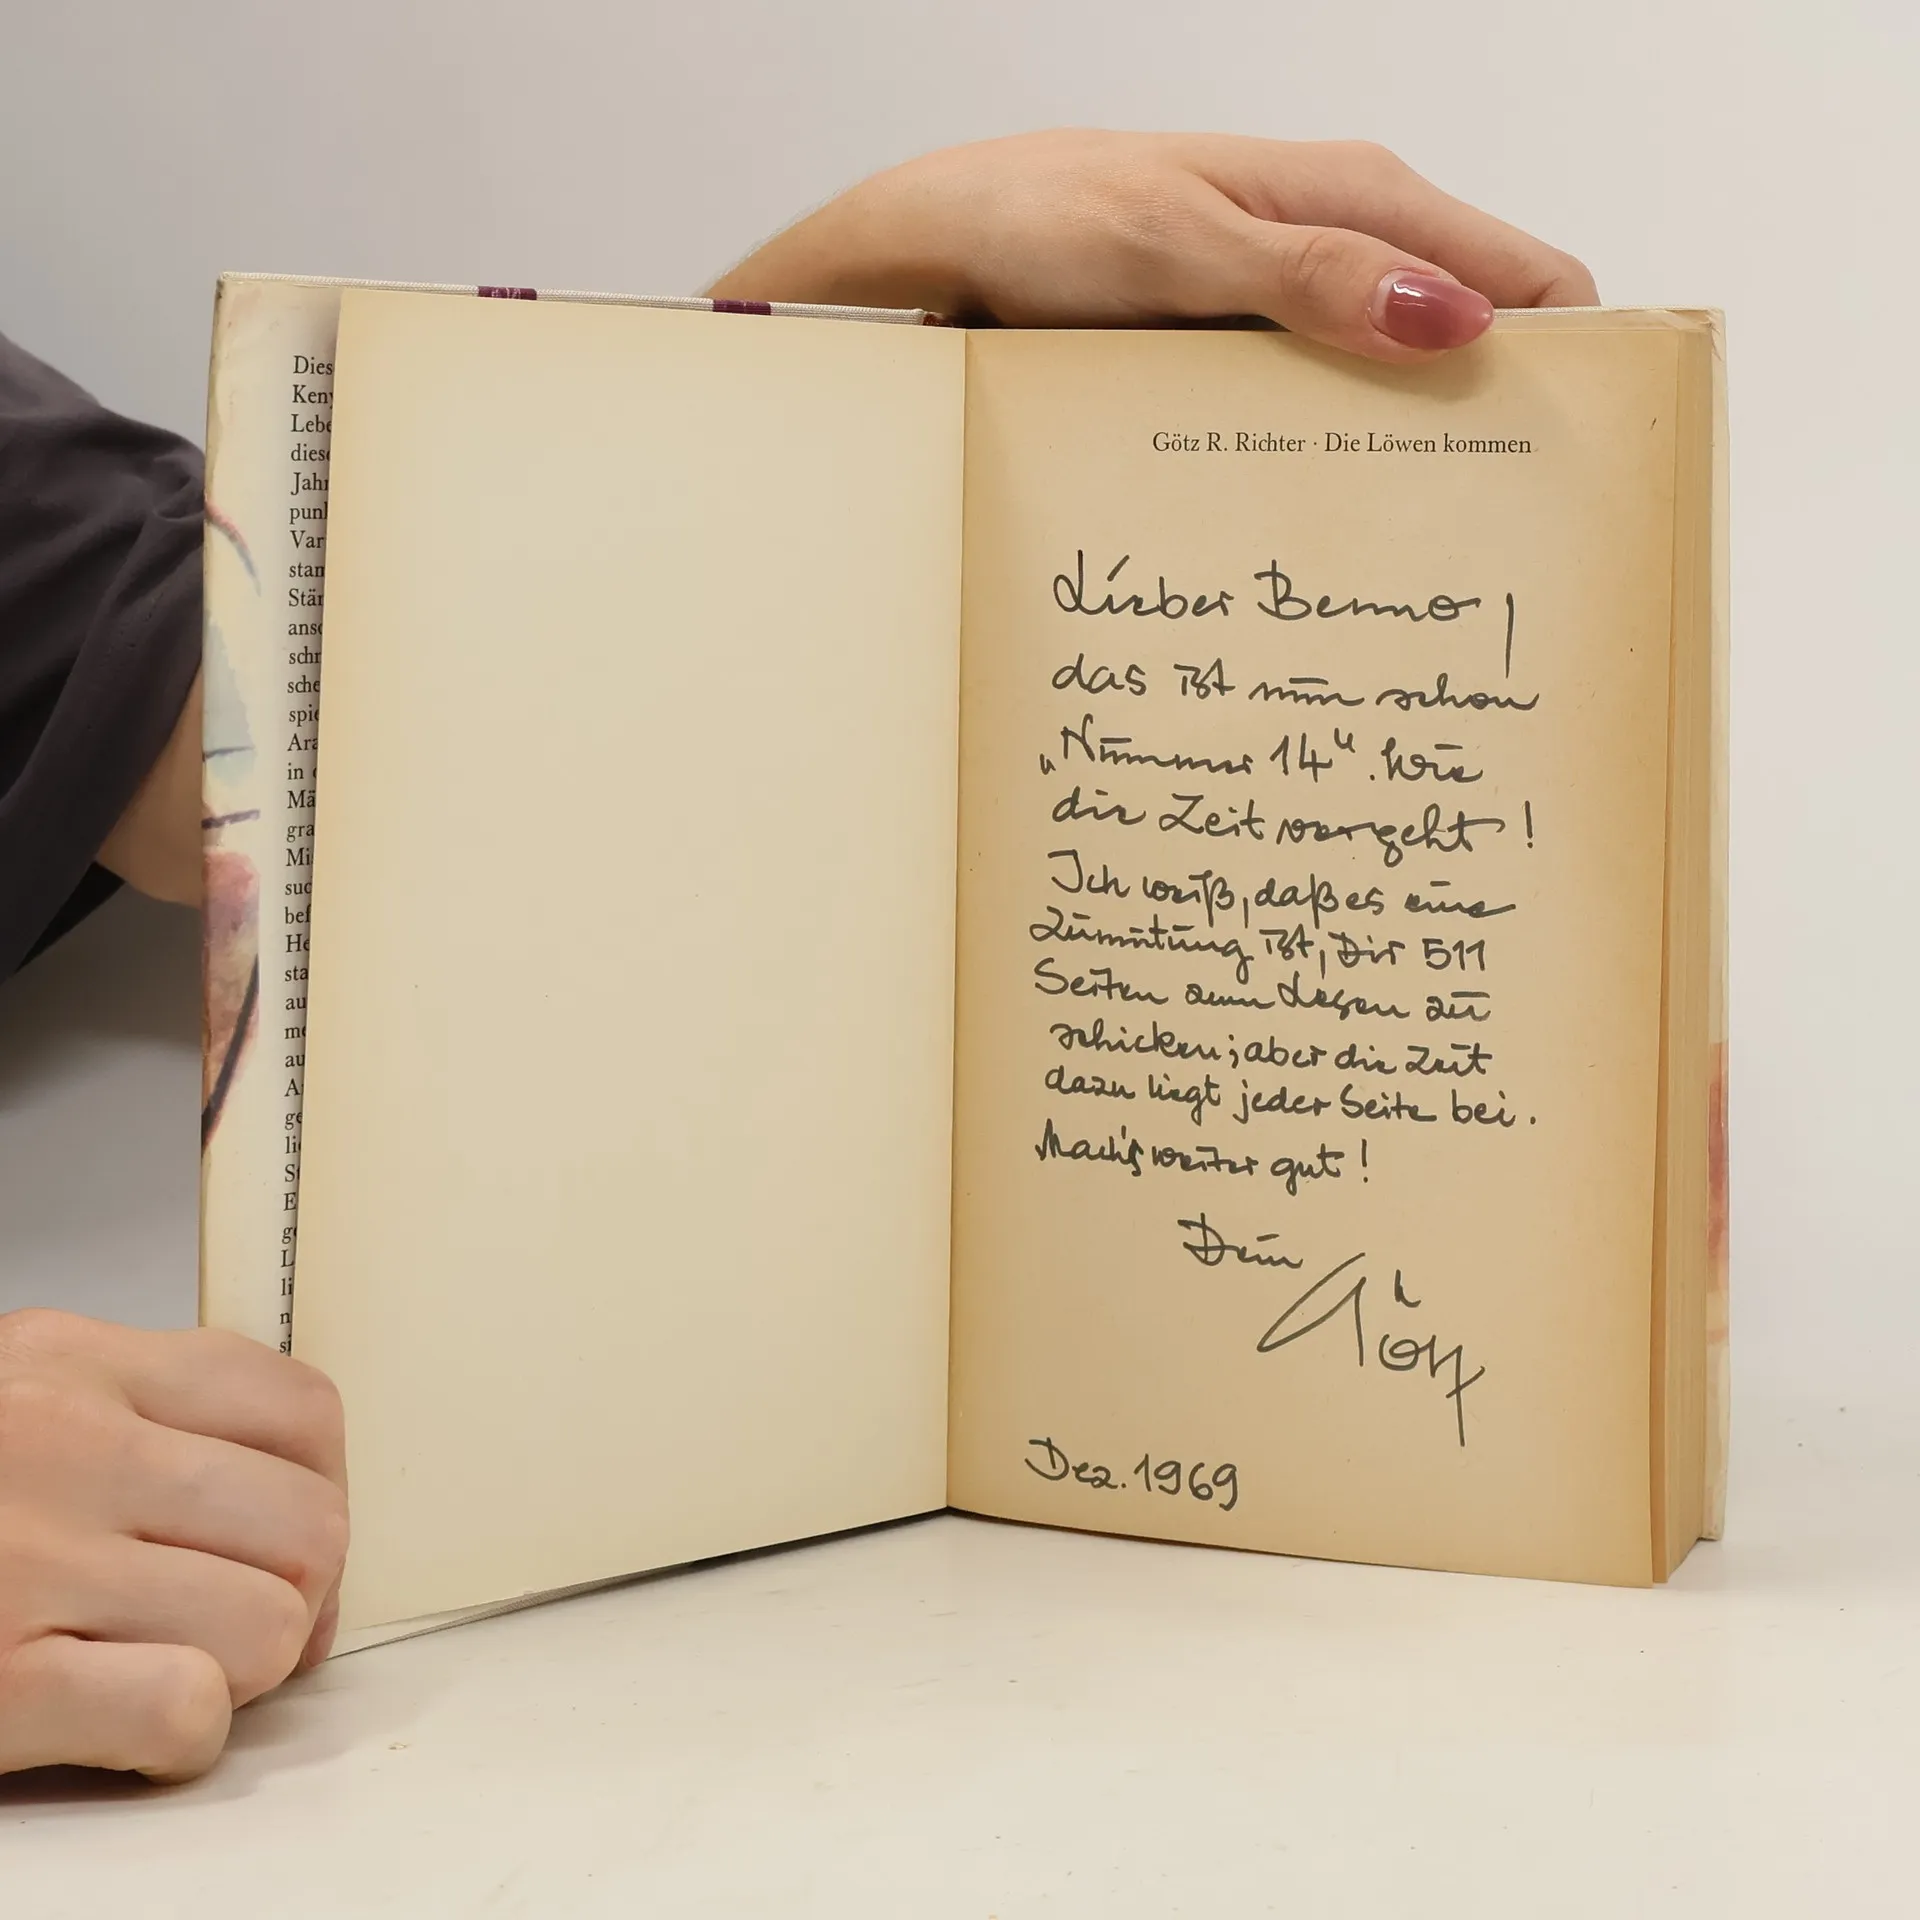 Dies
Keny
Lebe
diese
Jahr
punk
Var
stam
Stän
ansc
schr
sche
spie
Ara
in
Mä
gra
Mi
suc
bef
He
sta
au
me
au
A
ge
li
St
E
ge
L
li
n
si
Götz R. Richter · Die Löwen kommen
Lieber Benno!
das ist nun schon
„Nummer 14“. Wie
die Zeit vergeht!
Ich weiß, daß es eine
Zumutung ist, Dir 511
Seiten zum Lesen zu
schicken; aber die Zeit
dazu liegt jeder Seite bei.
Mach's weiter gut!
Dein
Götz
Dez. 1969